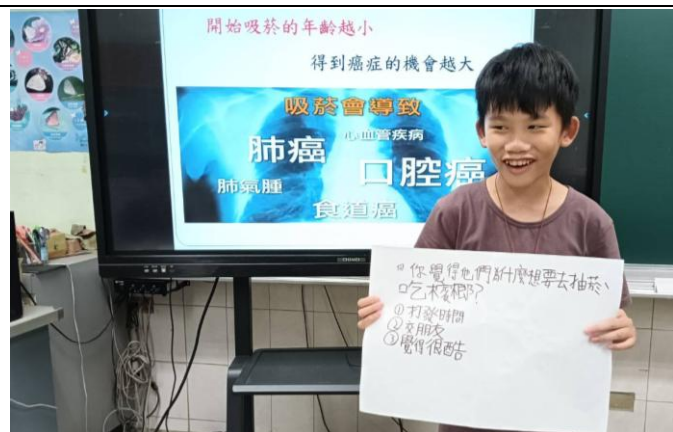 開始吸菸的年齡越小
得到癌症的機會越大
吸菸會導致
心血管疾病
肺癌
口腔癌
肺氣腫
食道癌
你覺得他們為什麼想要去抽菸、
吃檳榔?
①打發時間
②交朋友
③覺得很酷